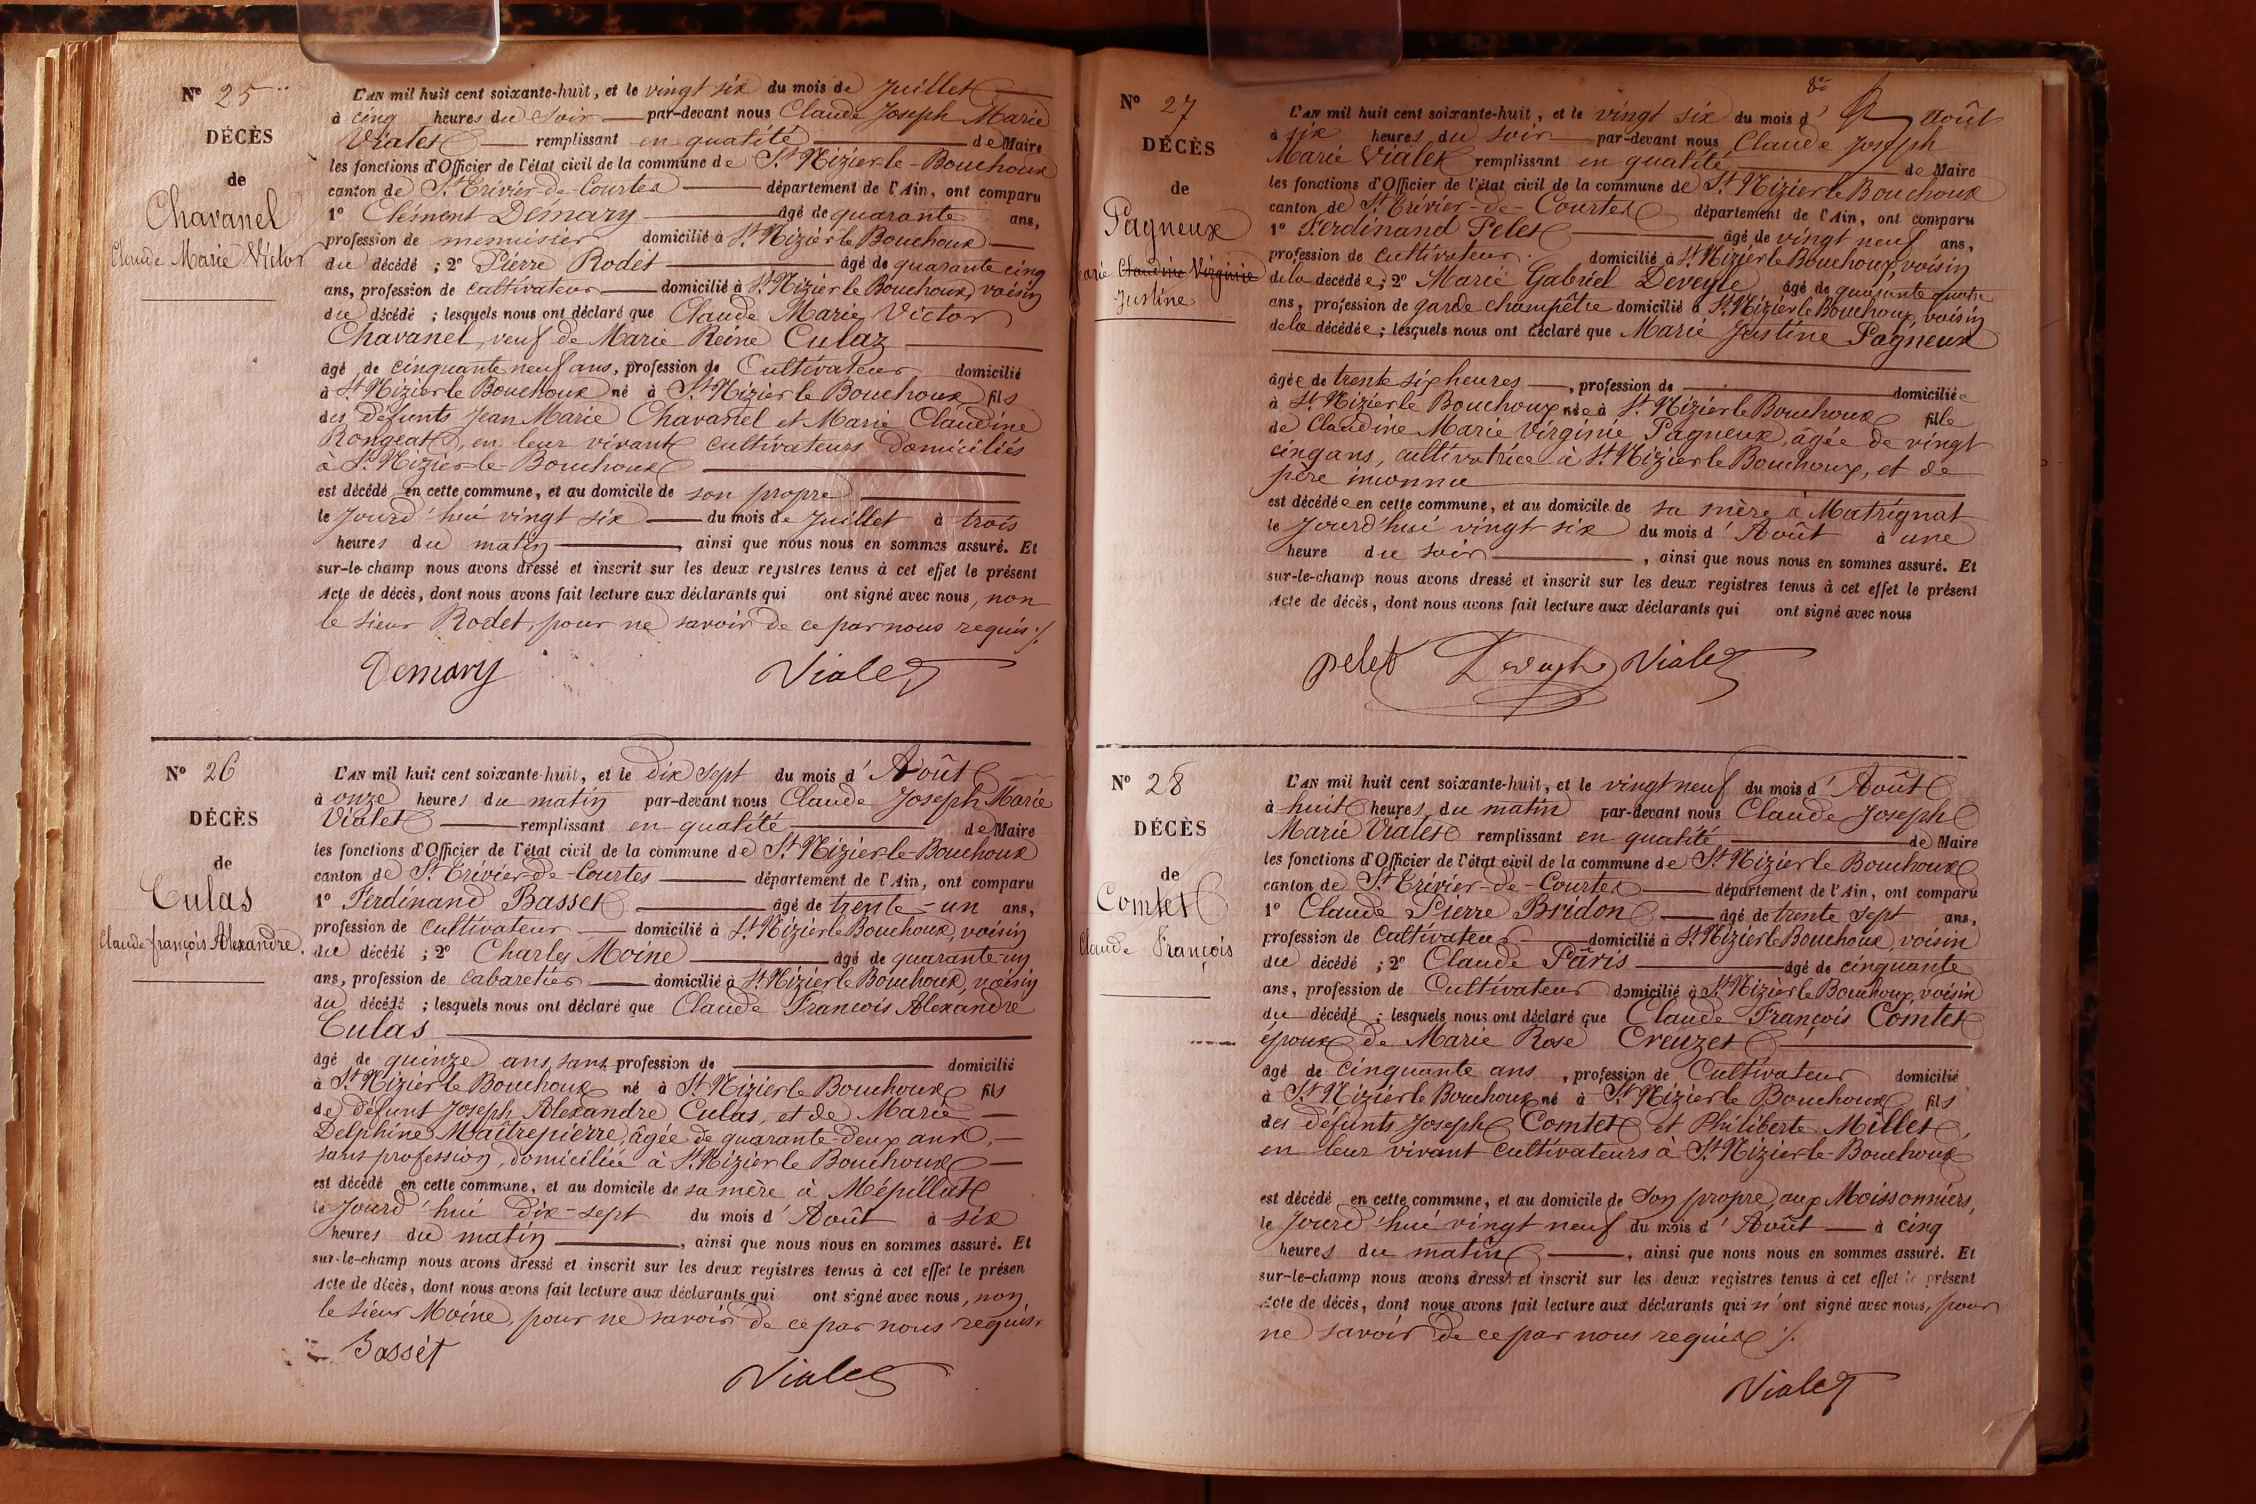 N° 25
DÉCÈS
de
Chavanel
Claude Marie Victor
L'AN mil huit cent soixante-huit, et le vingt six du mois de Juillet
à cinq heures du soir par-devant nous Claude Joseph Marie
Vialet remplissant en qualité de Maire
les fonctions d'Officier de l'état civil de la commune de St Nizier-le-Bouchoux
canton de St Trivier-de-Courtes département de l'Ain, ont comparu
1° Clément Démary âgé de quarante ans,
profession de menuisier domicilié à St Nizier le Bouchoux
du décédé ; 2° Pierre Rodet âgé de quarante cinq
ans, profession de cultivateur domicilié à St Nizier le Bouchoux, voisin
du décédé ; lesquels nous ont déclaré que Claude Marie Victor
Chavanel, veuf de Marie Reine Culaz
âgé de cinquante neuf ans, profession de Cultivateur domicilié
à St Nizier le Bouchoux né à St Nizier le Bouchoux fils
des défunts Jean Marie Chavanel et Marie Claudine
Rongeat, en leur vivant cultivateurs domiciliés
à St Nizier-le-Bouchoux
est décédé en cette commune, et au domicile de son propre
le Jourd'hui vingt six du mois de Juillet à trois
heures du matin, ainsi que nous nous en sommes assuré. Et
sur-le-champ nous avons dressé et inscrit sur les deux registres tenus à cet effet le présent
Acte de décès, dont nous avons fait lecture aux déclarants qui ont signé avec nous, non
le sieur Rodet, pour ne savoir de ce par nous requis ./.
Demary Vialet
N° 26
DÉCÈS
de
Culas
Claude françois Alexandre.
L'AN mil huit cent soixante-huit, et le dix sept du mois d'Août
à onze heures du matin par-devant nous Claude Joseph Marie
Vialet remplissant en qualité de Maire
les fonctions d'Officier de l'état civil de la commune de St Nizier-le-Bouchoux
canton de St Trivier-de-Courtes département de l'Ain, ont comparu
1° Ferdinand Basset âgé de trente-un ans,
profession de cultivateur domicilié à St Nizier le Bouchoux, voisin
du décédé ; 2° Charles Moine âgé de quarante-un
ans, profession de Cabaretier domicilié à St Nizier le Bouchoux, voisin
du décédé ; lesquels nous ont déclaré que Claude François Alexandre
Culas
âgé de quinze ans, sans profession de domicilié
à St Nizier le Bouchoux né à St Nizier le Bouchoux fils
de défunt Joseph Alexandre Culas, et de Marie
Delphine Maîtrepierre, âgée de quarante-deux ans,
sans profession, domiciliée à St Nizier le Bouchoux
est décédé en cette commune, et au domicile de sa mère à Mépillat
le Jourd'hui dix-sept du mois d'Août à six
heures du matin, ainsi que nous nous en sommes assuré. Et
sur-le-champ nous avons dressé et inscrit sur les deux registres tenus à cet effet le présen
Acte de décès, dont nous avons fait lecture aux déclarants qui ont signé avec nous, non
le sieur Moine, pour ne savoir de ce par nous requis.
Basset
Vialet
N° 27
DÉCÈS
de
Pagneux
Marie Claudine Virginie
Justine
L'AN mil huit cent soixante-huit, et le vingt six du mois d'août
à six heures du soir par-devant nous Claude Joseph
Marie Vialet remplissant en qualité de Maire
les fonctions d'Officier de l'état civil de la commune de St Nizier le Bouchoux
canton de St Trivier-de-Courtes département de l'Ain, ont comparu
1° Ferdinand Pelet âgé de vingt neuf ans,
profession de cultivateur domicilié à St Nizier le Bouchoux, voisin
de la décédée ; 2° Marie Gabriel Deveyle âgé de quarante quatre
ans, profession de garde champêtre domicilié à St Nizier le Bouchoux, voisin
de la décédée ; lesquels nous ont déclaré que Marie Justine Pagneux
âgée de trente six heures, profession de domiciliée
à St Nizier le Bouchoux née à St Nizier le Bouchoux fille
de Claudine Marie Virginie Pagneux, âgée de vingt
cinq ans, cultivatrice à St Nizier le Bouchoux, et de
père inconnu
est décédée en cette commune, et au domicile de sa mère à Matrignat
le Jourd'hui vingt six du mois d'Août à une
heure du soir, ainsi que nous nous en sommes assuré. Et
sur-le-champ nous avons dressé et inscrit sur les deux registres tenus à cet effet le présent
Acte de décès, dont nous avons fait lecture aux déclarants qui ont signé avec nous
pelet Deveyle Vialet
N° 28
DÉCÈS
de
Comtet
Claude François
L'AN mil huit cent soixante-huit, et le vingt neuf du mois d'Août
à huit heures du matin par-devant nous Claude Joseph
Marie Vialet remplissant en qualité de Maire
les fonctions d'Officier de l'état civil de la commune de St Nizier le Bouchoux
canton de St Trivier-de-Courtes département de l'Ain, ont comparu
1° Claude Pierre Bridon âgé de trente sept ans,
profession de Cultivateur domicilié à St Nizier le Bouchoux, voisin
du décédé ; 2° Claude Pâris âgé de cinquante
ans, profession de Cultivateur domicilié à St Nizier le Bouchoux, voisin
du décédé ; lesquels nous ont déclaré que Claude François Comtet
époux de Marie Rose Creuzet
âgé de cinquante ans, profession de Cultivateur domicilié
à St Nizier le Bouchoux né à St Nizier le Bouchoux fils
des défunts Joseph Comtet et Philiberte Millet,
en leur vivant cultivateurs à St Nizier-le-Bouchoux
est décédé en cette commune, et au domicile de son propre, aux Moissonniers,
le Jourd'hui vingt neuf du mois d'Août à cinq
heures du matin, ainsi que nous nous en sommes assuré. Et
sur-le-champ nous avons dressé et inscrit sur les deux registres tenus à cet effet le présent
Acte de décès, dont nous avons fait lecture aux déclarants qui n'ont signé avec nous, pour
ne savoir de ce par nous requis ./.
Vialet